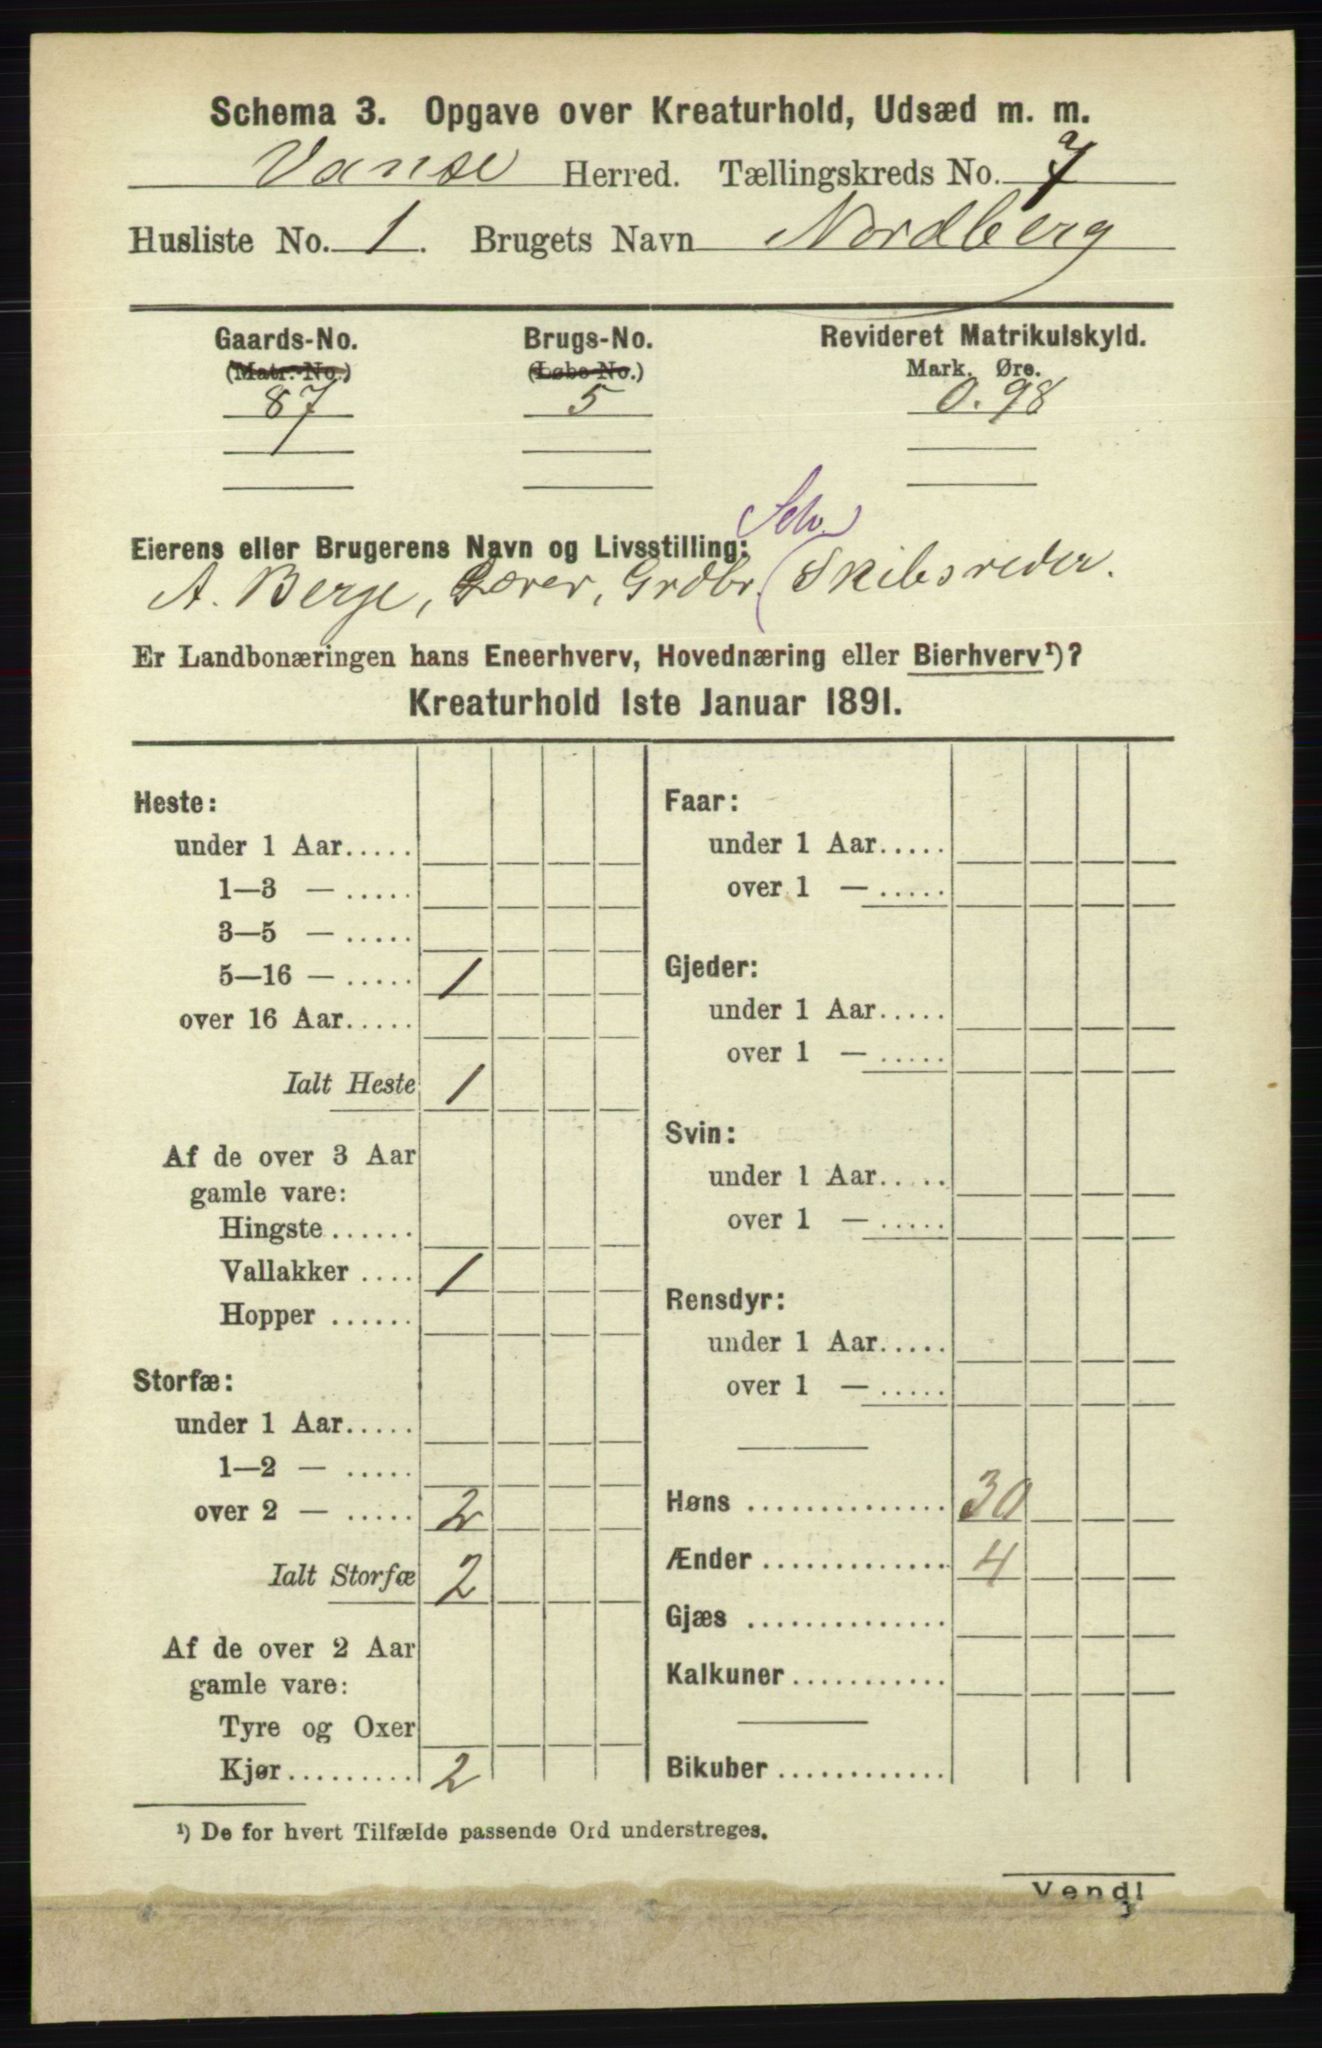 Schema 3. Opgave over Kreaturhold, Udsæd m. m.
Vanse Herred. Tællingskreds No. 7
Husliste No. 1. Brugets Navn Nordberg
Gaards-No. Brugs-No. Revideret Matrikulskyld.
(Matr.-No.) (Løbe-No.) Mark. Øre.
87 5 0.98
Selv.
Eierens eller Brugerens Navn og Livsstilling:
A. Berge, Lærer, Grdbr. (Skibsreder.
Er Landbonæringen hans Eneerhverv, Hovednæring eller Bierhverv¹)?
Kreaturhold 1ste Januar 1891.
Heste:
under 1 Aar.....
1—3 — .....
3—5 — .....
5—16 — ..... 1
over 16 Aar.....
Ialt Heste 1
Af de over 3 Aar
gamle vare:
Hingste ......
Vallakker .... 1
Hopper ......
Storfæ:
under 1 Aar.....
1—2 — .....
over 2 — ..... 2
Ialt Storfæ 2
Af de over 2 Aar
gamle vare:
Tyre og Oxer
Kjør.......... 2
Faar:
under 1 Aar.....
over 1 — .....
Gjeder:
under 1 Aar.....
over 1 — .....
Svin:
under 1 Aar.....
over 1 — .....
Rensdyr:
under 1 Aar.....
over 1 — .....
Høns .............. 30
Ænder ............. 4
Gjæs ..............
Kalkuner ...........
Bikuber ............
¹) De for hvert Tilfælde passende Ord understreges.
Vend!